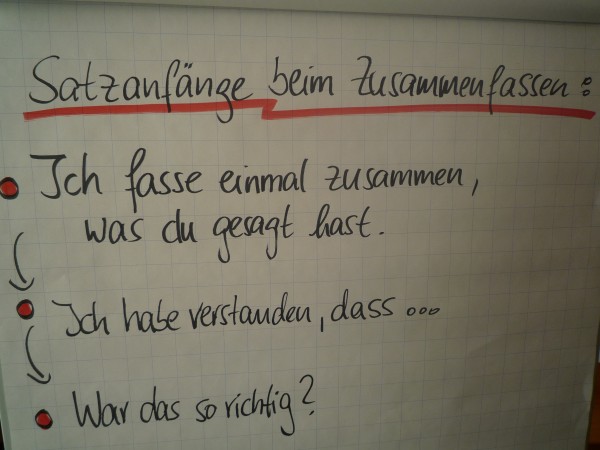 Satzanfänge beim Zusammenfassen:
Ich fasse einmal zusammen,
was du gesagt hast.
Ich habe verstanden, dass ...
War das so richtig?